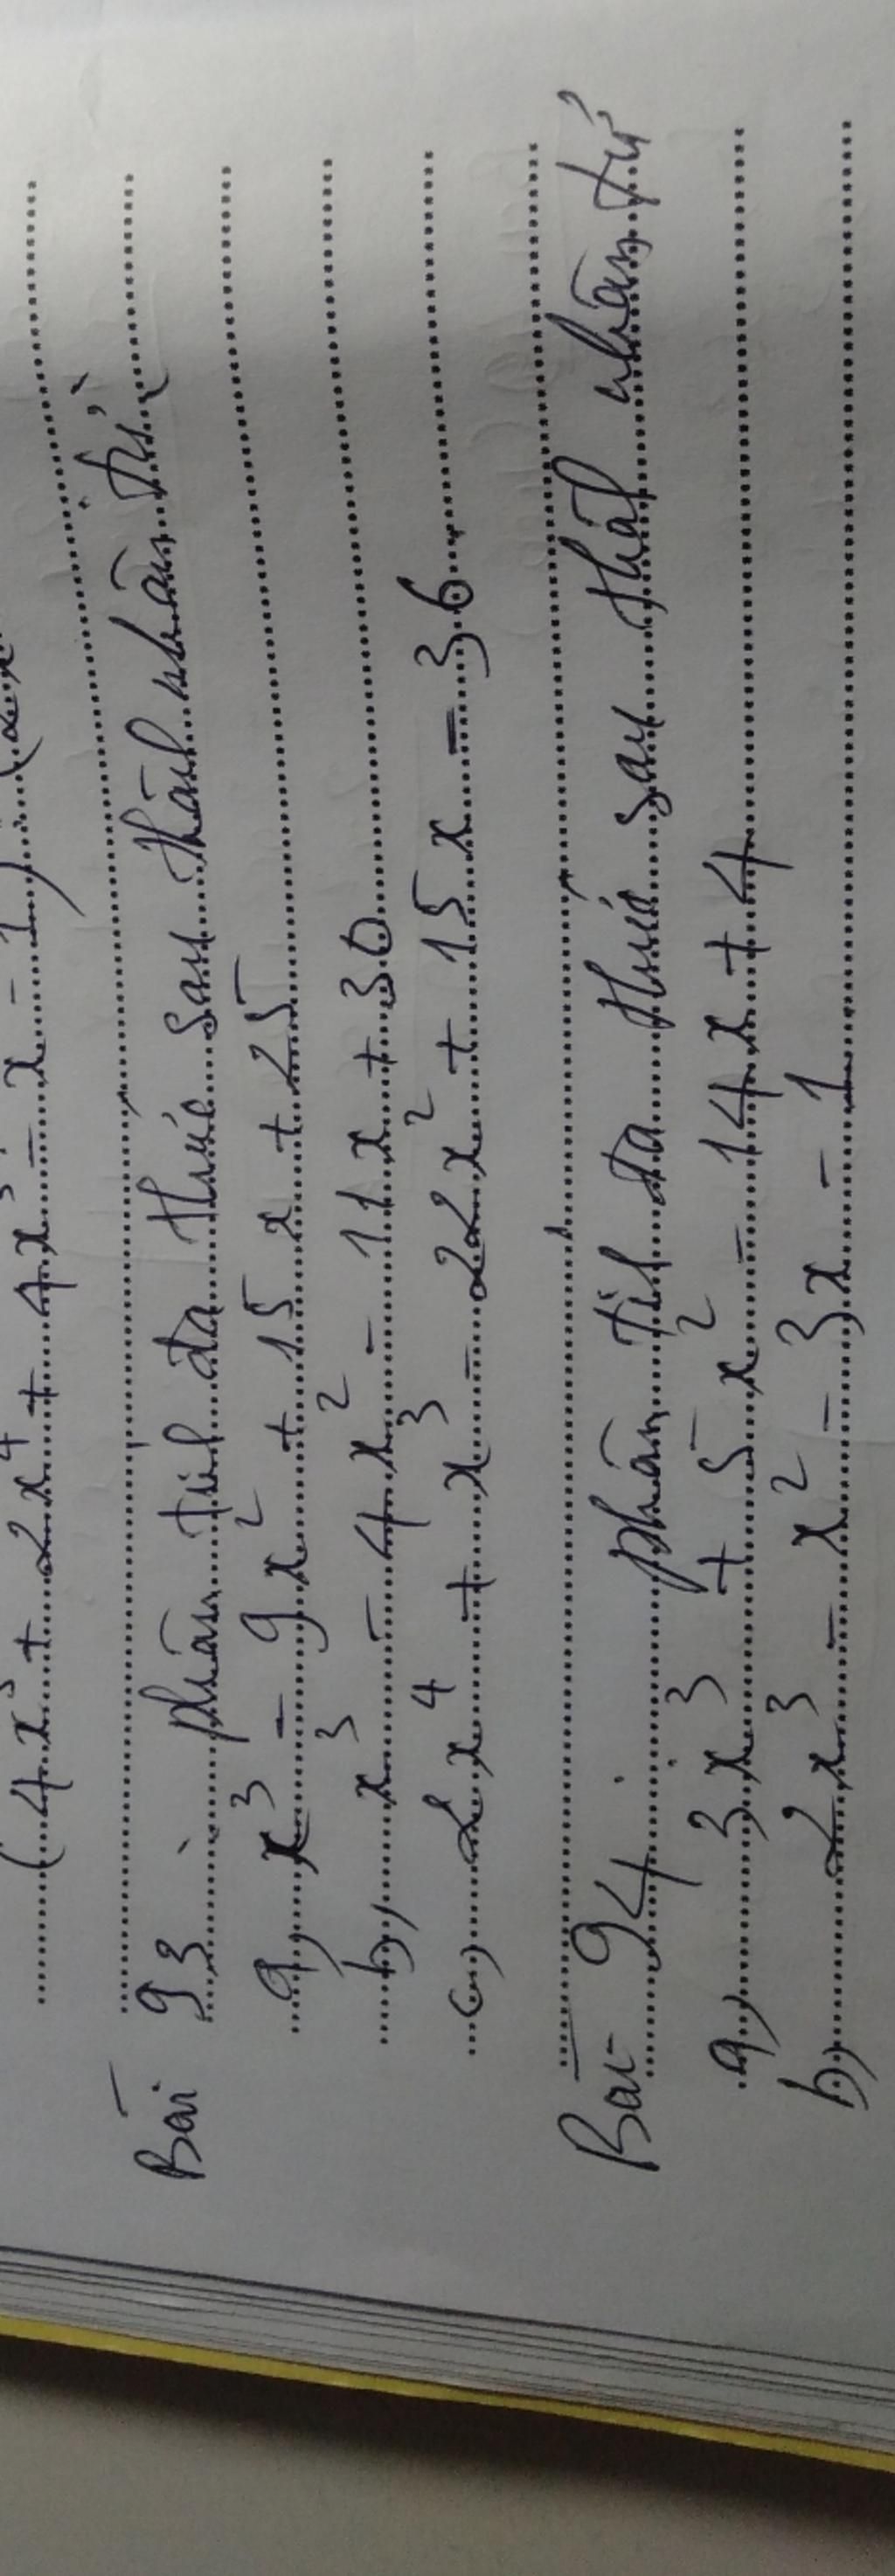 (4x⁵ + 2x⁴ + 4x³ - x - 1) : (2x
Bài 93 phân tích đa thức sau thành nhân tử
a, x³ - 9x² + 15x + 25
b, x³ - 4x² - 11x + 30
c, 2x⁴ + x³ - 22x² + 15x - 36
Bài 94 phân tích đa thức sau thành nhân tử
a, 3x³ + 5x² - 14x + 4
b, 2x³ - x² - 3x - 1